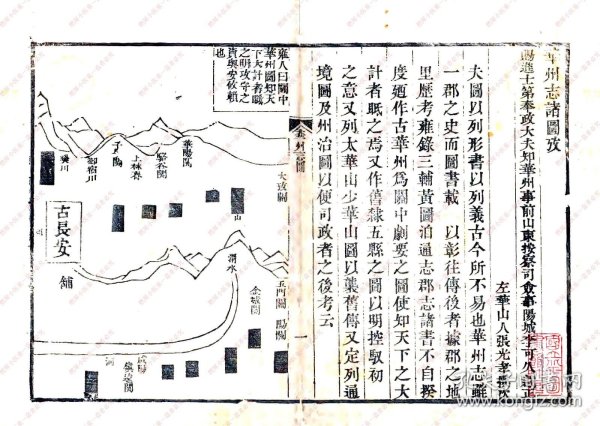 華州志諸圖攷
賜進士第奉政大夫知華州事前山東按察司僉事陽城李可久
左華山人張光孝
夫圖以列形書以列義古今所不易也華州志雖
一郡之史而圖書載
以彰往傳後者據郡之地
里歷考雍錄三輔黃圖洎通志郡志諸書不自揆
度廼作古華州爲關中劇要之圖使知天下之大
計者眂之焉又作舊隸五縣之圖以明控馭初
之意又列太華山少華山圖以襲舊傳又定列通
境圖及州治圖以便司政者之後考云
一
雍人曰關中
華州圖知天
下大計者眂
之明攻守之
資與安攸賴
也
大散關
華陽關
駱谷關
上林春
子午關
御宿川
樊川
古長安
舖
渭水
山
五門關
陽關
金城關
咸陽